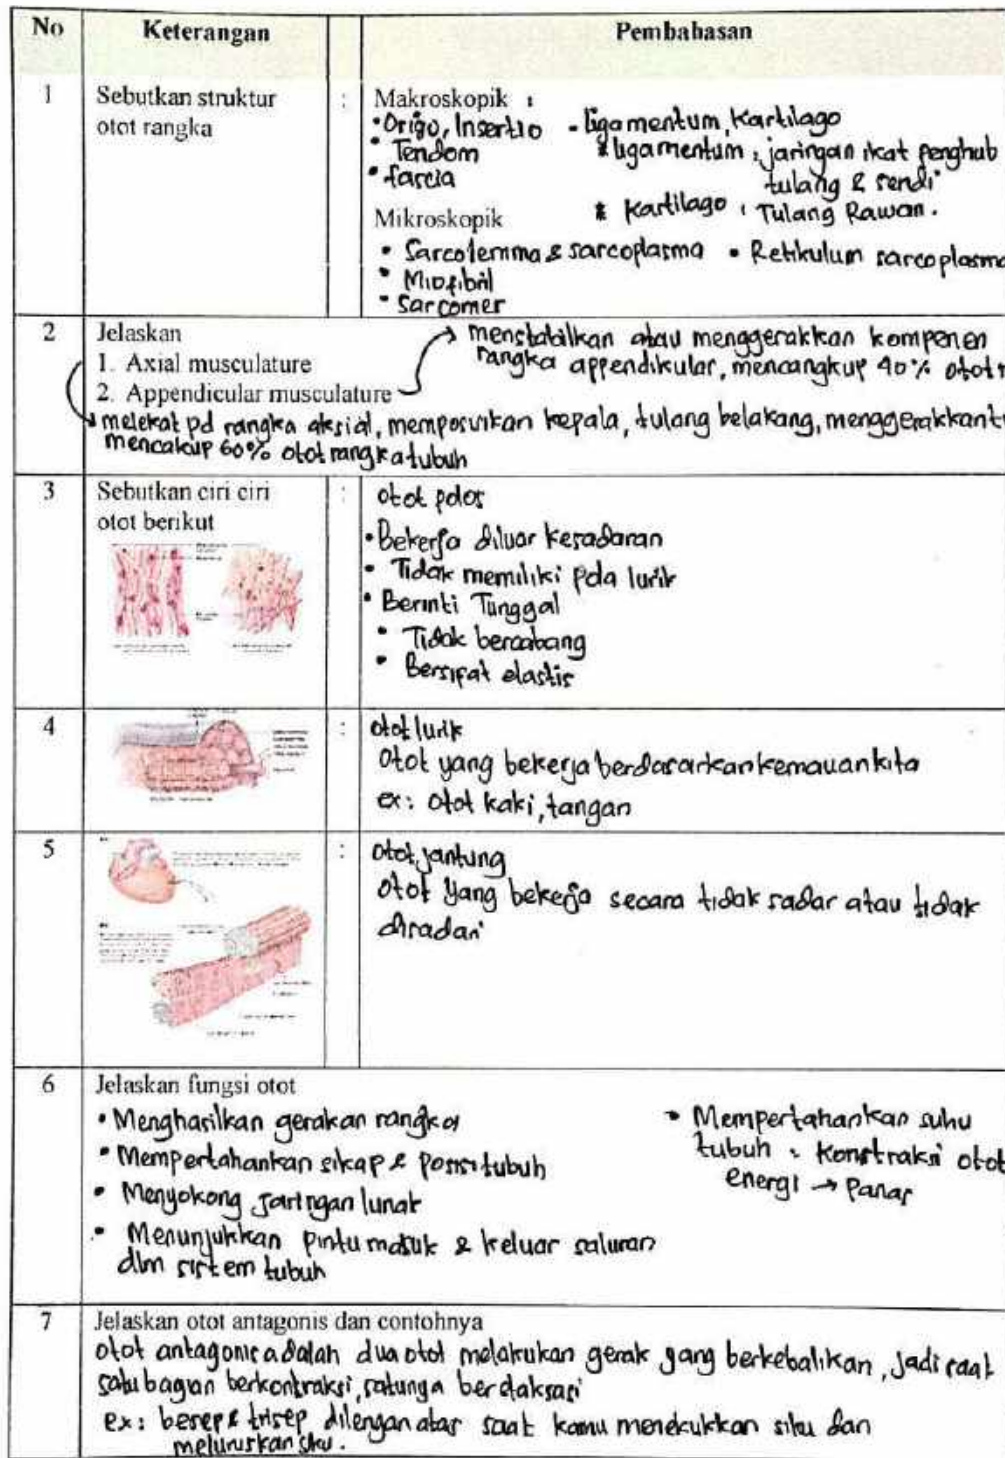 No Keterangan Pembahasan
1 Sebutkan struktur : Makroskopik :
otot rangka
• Origo, Insertio - ligamentum, Kartilago
• Tendom * ligamentum : jaringan ikat penghub
• farcia tulang & sendi
* Kartilago : Tulang Rawan.
Mikroskopik
• Sarcolemma & sarcoplasma • Retikulum sarcoplasma
• Miofibril
• Sarcomer
2 Jelaskan
1. Axial musculature
2. Appendicular musculature
menstabilkan atau menggerakkan kompenen
rangka appendikular, mencangkup 40% otot r
melekat pd rangka aksial, memposisikan kepala, tulang belakang, menggerakkan tu
mencakup 60% otot rangka tubuh
3 Sebutkan ciri ciri : otot polos
otot berikut
• Bekerja diluar kesadaran
• Tidak memiliki pola lurik
• Berinti Tunggal
• Tidak bercabang
• Bersifat elastis
4 : otot lurik
Otot yang bekerja berdasarkan kemauan kita
ex: otot kaki, tangan
5 : Otot jantung
otot yang bekerja secara tidak sadar atau tidak
disadari
6 Jelaskan fungsi otot
• Menghasilkan gerakan rangka
• Mempertahankan sikap & posisi tubuh
• Menyokong jaringan lunak
• Menunjukkan pintu masuk & keluar saluran
dlm sistem tubuh
• Mempertahankan suhu
tubuh : Konstraksi otot
energi → panas
7 Jelaskan otot antagonis dan contohnya
otot antagonis adalah dua otot melakukan gerak yang berkebalikan, jadi saat
satu bagian berkontraksi, satunya
ex: besep & trisep dilengan atas saat kamu menekukkan siku dan
meluruskan siku.